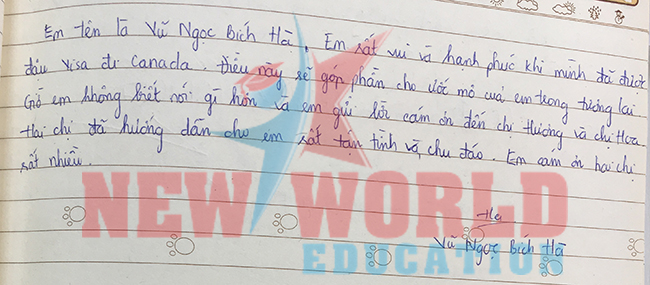 Em tên là Vũ Ngọc Bích Hà. Em rất vui và hạnh phúc khi mình đã được
đậu visa đi Canada. Điều này sẽ góp phần cho ước mơ của em trong tương lai
Giờ em không biết nói gì hơn và em gửi lời cám ơn đến chị Thương và chị Hoa
Hai chị đã hướng dẫn cho em rất tận tình và chu đáo. Em cám ơn hai chị
rất nhiều.
NEW WORLD
EDUCATION
Hà
Vũ Ngọc Bích Hà